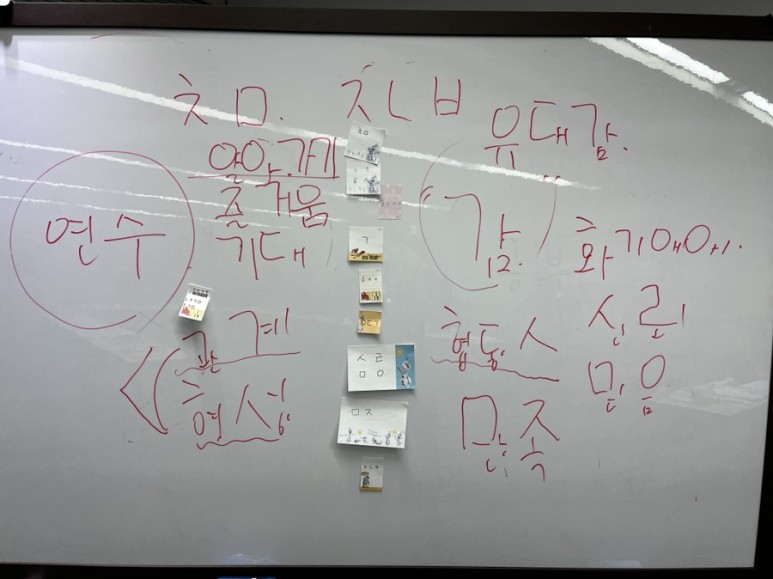 ㅊㅁ. ㅊㄴㅂ
유대감.
알아.가기
즐거움
기대
연수
화기애애.
관계
형성
협동.ㅅ
신뢰
믿음
만족
ㄱ
ㅅㄹ
ㅁㅇ
ㅁㅈ